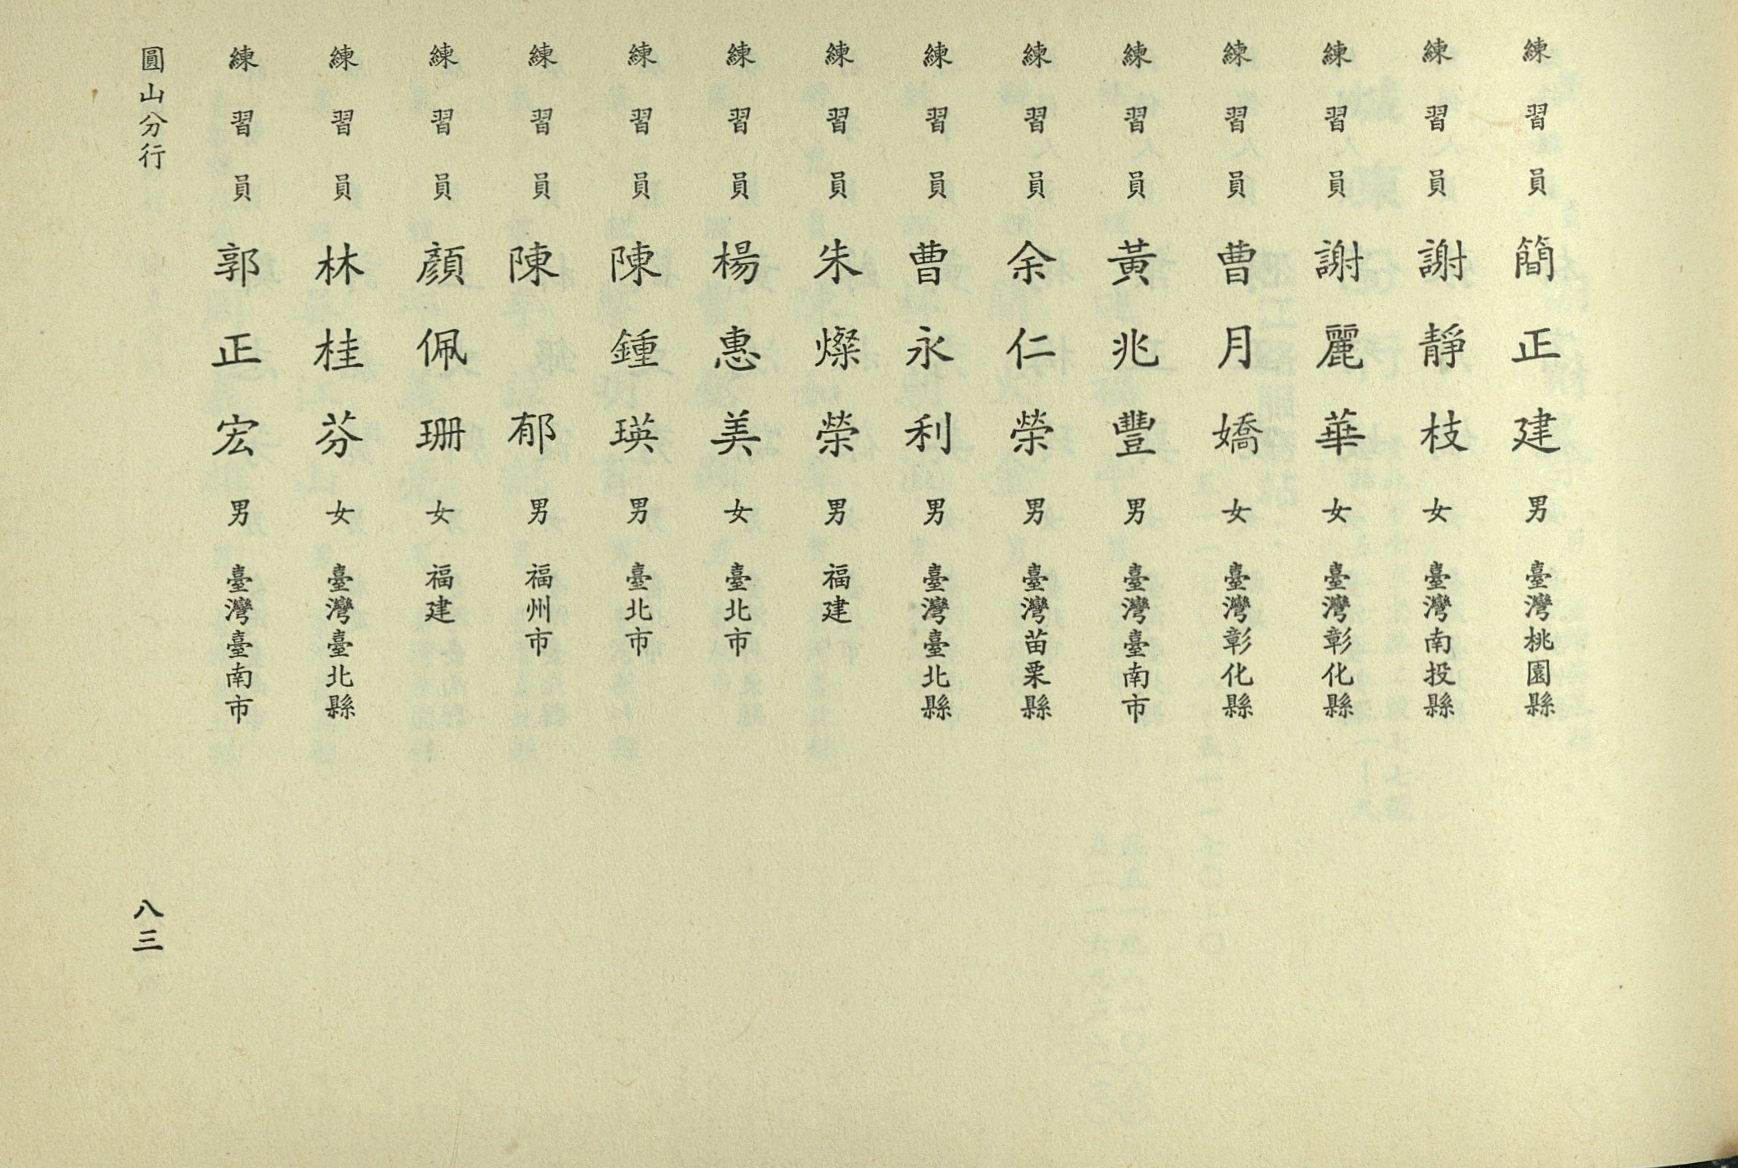 練習員 簡正建 男 臺灣桃園縣
練習員 謝靜枝 女 臺灣南投縣
練習員 謝麗華 女 臺灣彰化縣
練習員 曹月嬌 女 臺灣彰化縣
練習員 黃兆豐 男 臺灣臺南市
練習員 余仁榮 男 臺灣苗栗縣
練習員 曹永利 男 臺灣臺北縣
練習員 朱燦榮 男 福建
練習員 楊惠美 女 臺北市
練習員 陳鍾瑛 男 臺北市
練習員 陳郁 男 福州市
練習員 顏佩珊 女 福建
練習員 林桂芬 女 臺灣臺北縣
練習員 郭正宏 男 臺灣臺南市
圓山分行
八三